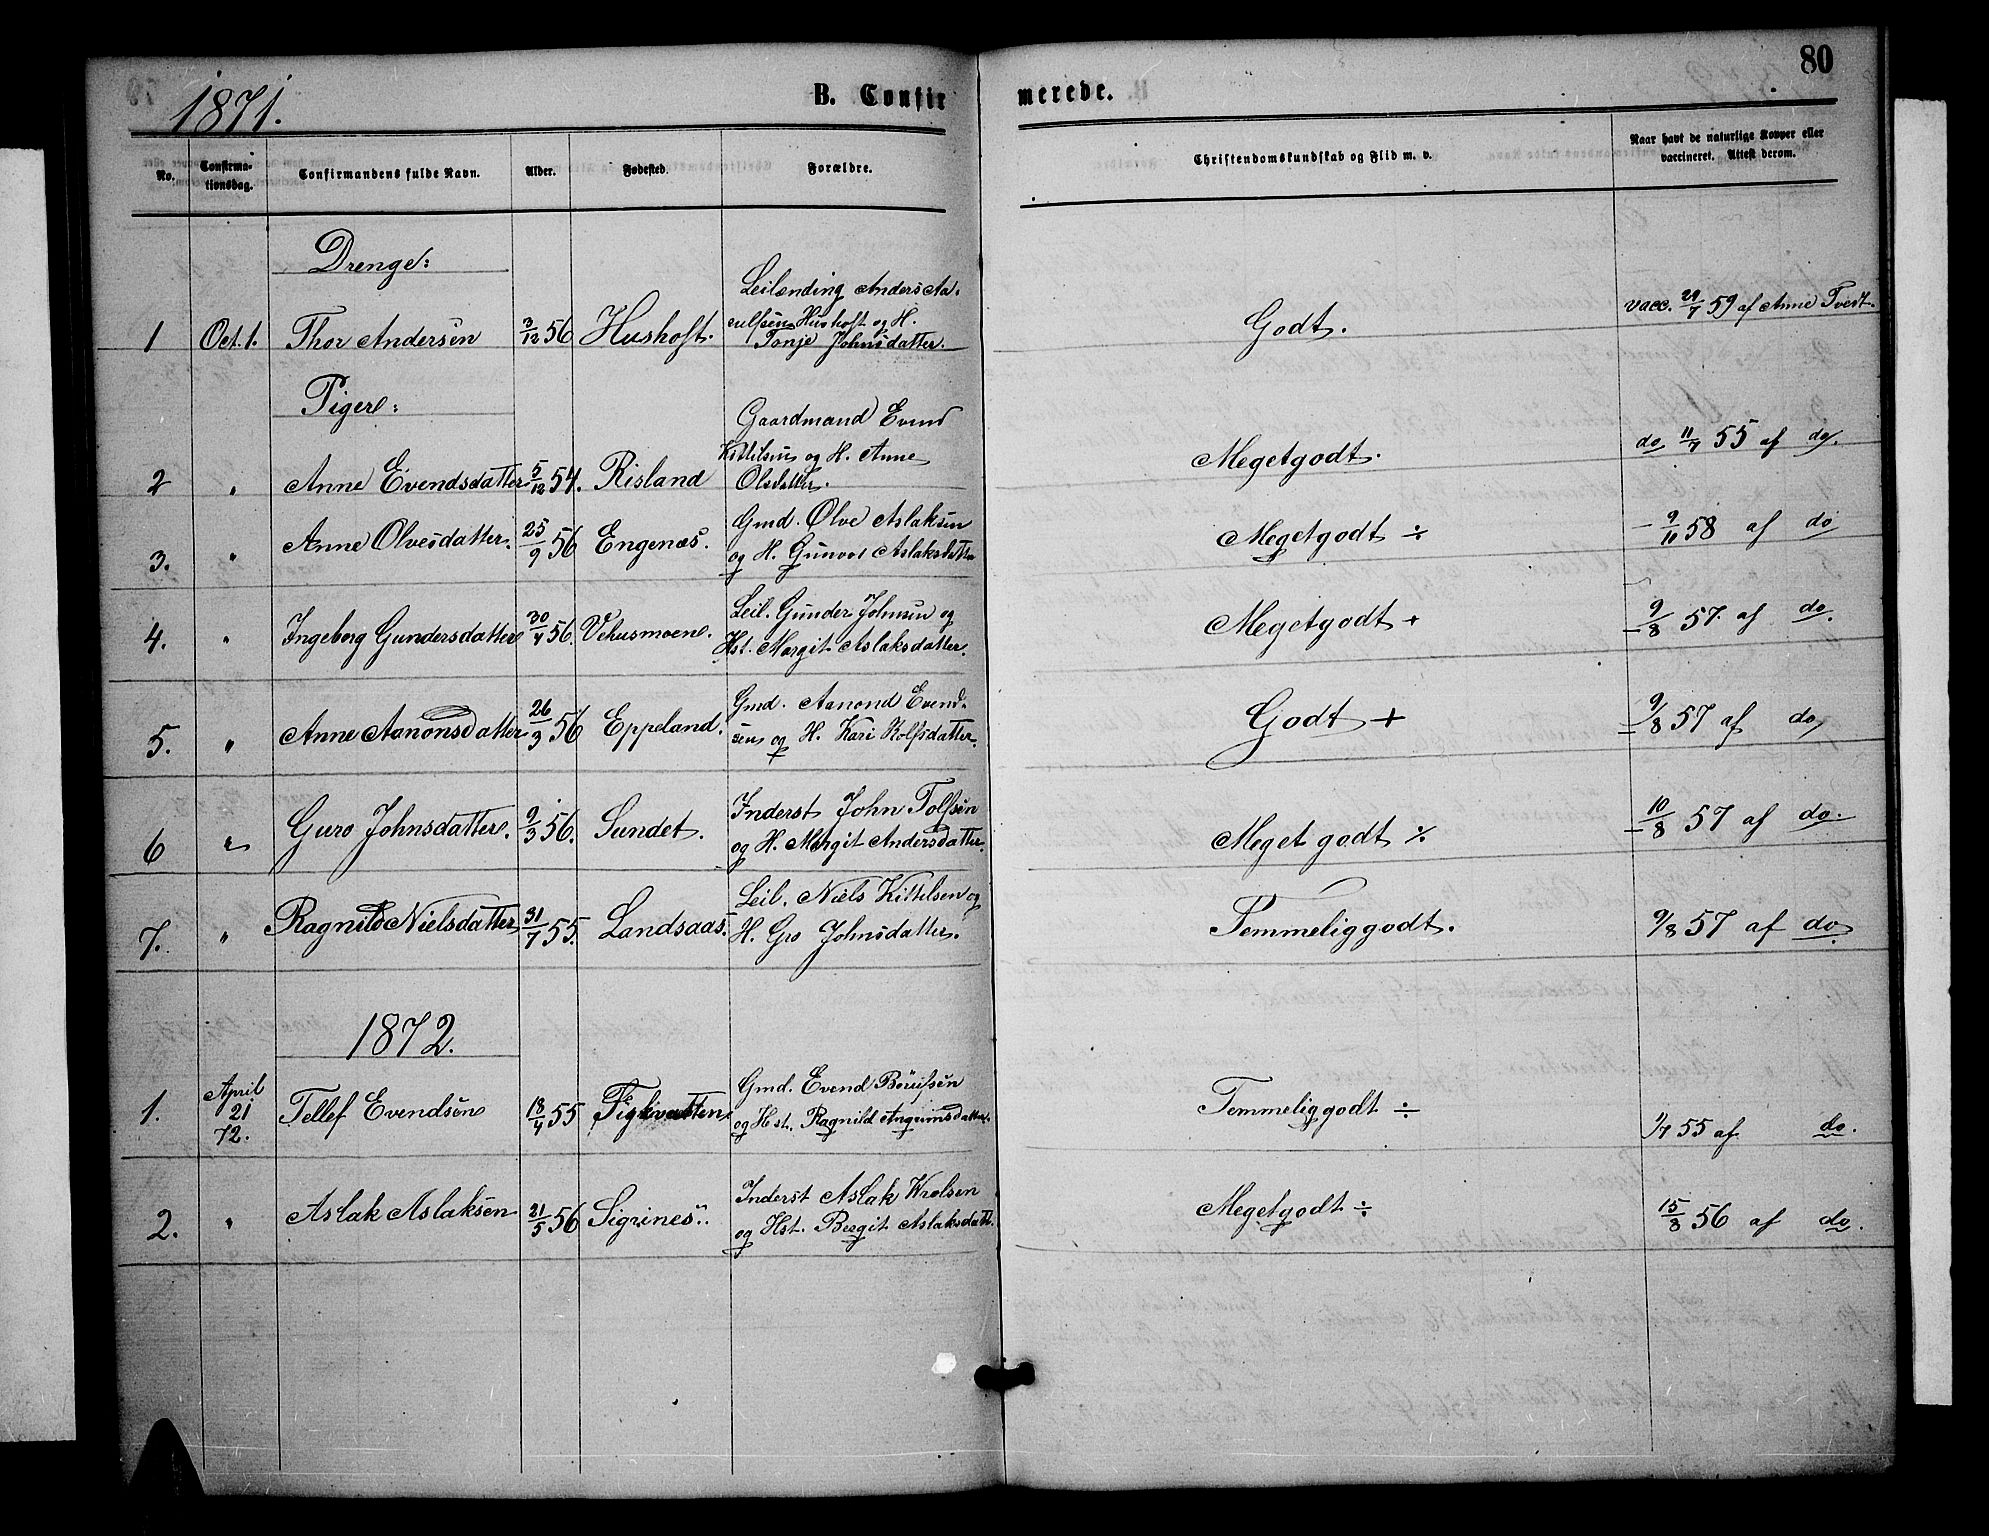 1871.
B. Confirmerede.
80
No.
Confirma-
tionsdag.
Confirmandens fulde Navn.
Alder.
Fødested.
Forældre.
Christendomskundskab og Flid m. v.
Naar havt de naturlige Kopper eller
vaccineret. Attest derom.
Drenge:
1 Oct. 1. Thor Andersen 3/12 56 Hushoft. Leilending Anders Aa-
Hushoft og H.
Tonje Johnsdatter. Godt. vacc. 29/7 59 af Anne Tveit.
Piger:
2 " Anne Evendsdatter 5/12 54. Risland Gaardmand Evend
Kittilsen og H. Anne
Olsdatter. Megetgodt. do. 11/7 55 af do.
3. " Anne Olvesdatter. 25/9 56 Engenæs. Gmd. Olve Aslaksen
og H. Gunvor Aslaksdatter Megetgodt ÷ - 9/10 58 af do
4. " Ingeborg Gundersdatter 30/4 56. Vehusmoen. Leil. Gunder Johnsen og
Hst. Margit Aslaksdatter. Megetgodt + - 9/8 57. af do.
5. " Anne Aanonsdatter 26/3 56 Eppeland. Gmd. Aanond Evend-
sen og H. Kari Rolfsdatter. Godt + - 9/8 57 af do
6 " Guro Johnsdatter. 9/3 56. Sundet. Inderst John Tolfsen
og H. Margit Andersdatter. Meget godt ÷ - 10/8 57 af do.
7. " Ragnild Nielsdatter 31/7 55. Landsaas. Leil. Niels Kittilsen og
H. Gro Johnsdatter. Temmeliggodt. 9/8 57 af do
1872.
1. April
21
72. Tellef Evendsen 18/4 55 Gmd. Evend
og Hst. Ragnild Angrimsdatter. Temmeliggodt ÷ 1/7 55 af do.
2. " Aslak Aslaksen 21/5 56 Sigrines.. Inderst Aslak
og Hst. Bergit Aslaksdatt. Megetgodt ÷ 15/8 56 af do.